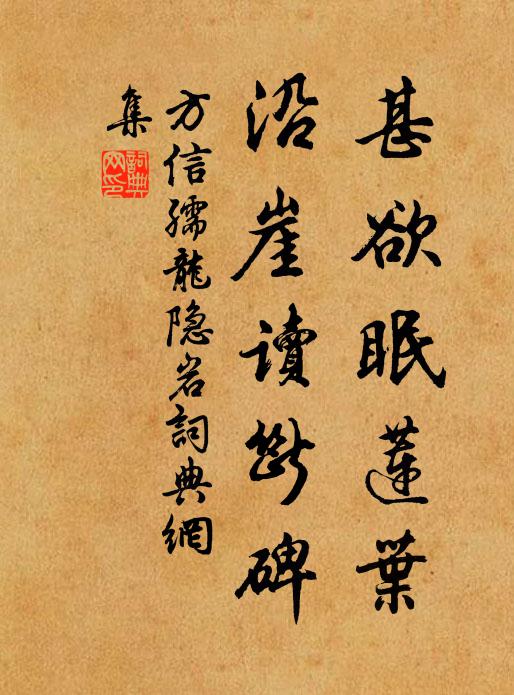 甚欲眠蓮葉
沿崖讀斷碑
方信孺龍隐岩詞典網
集
詞典網印